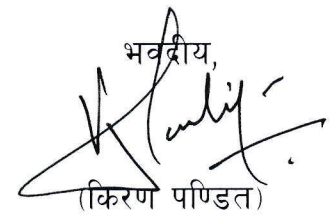 भवदीय,
(किरण पण्डित)